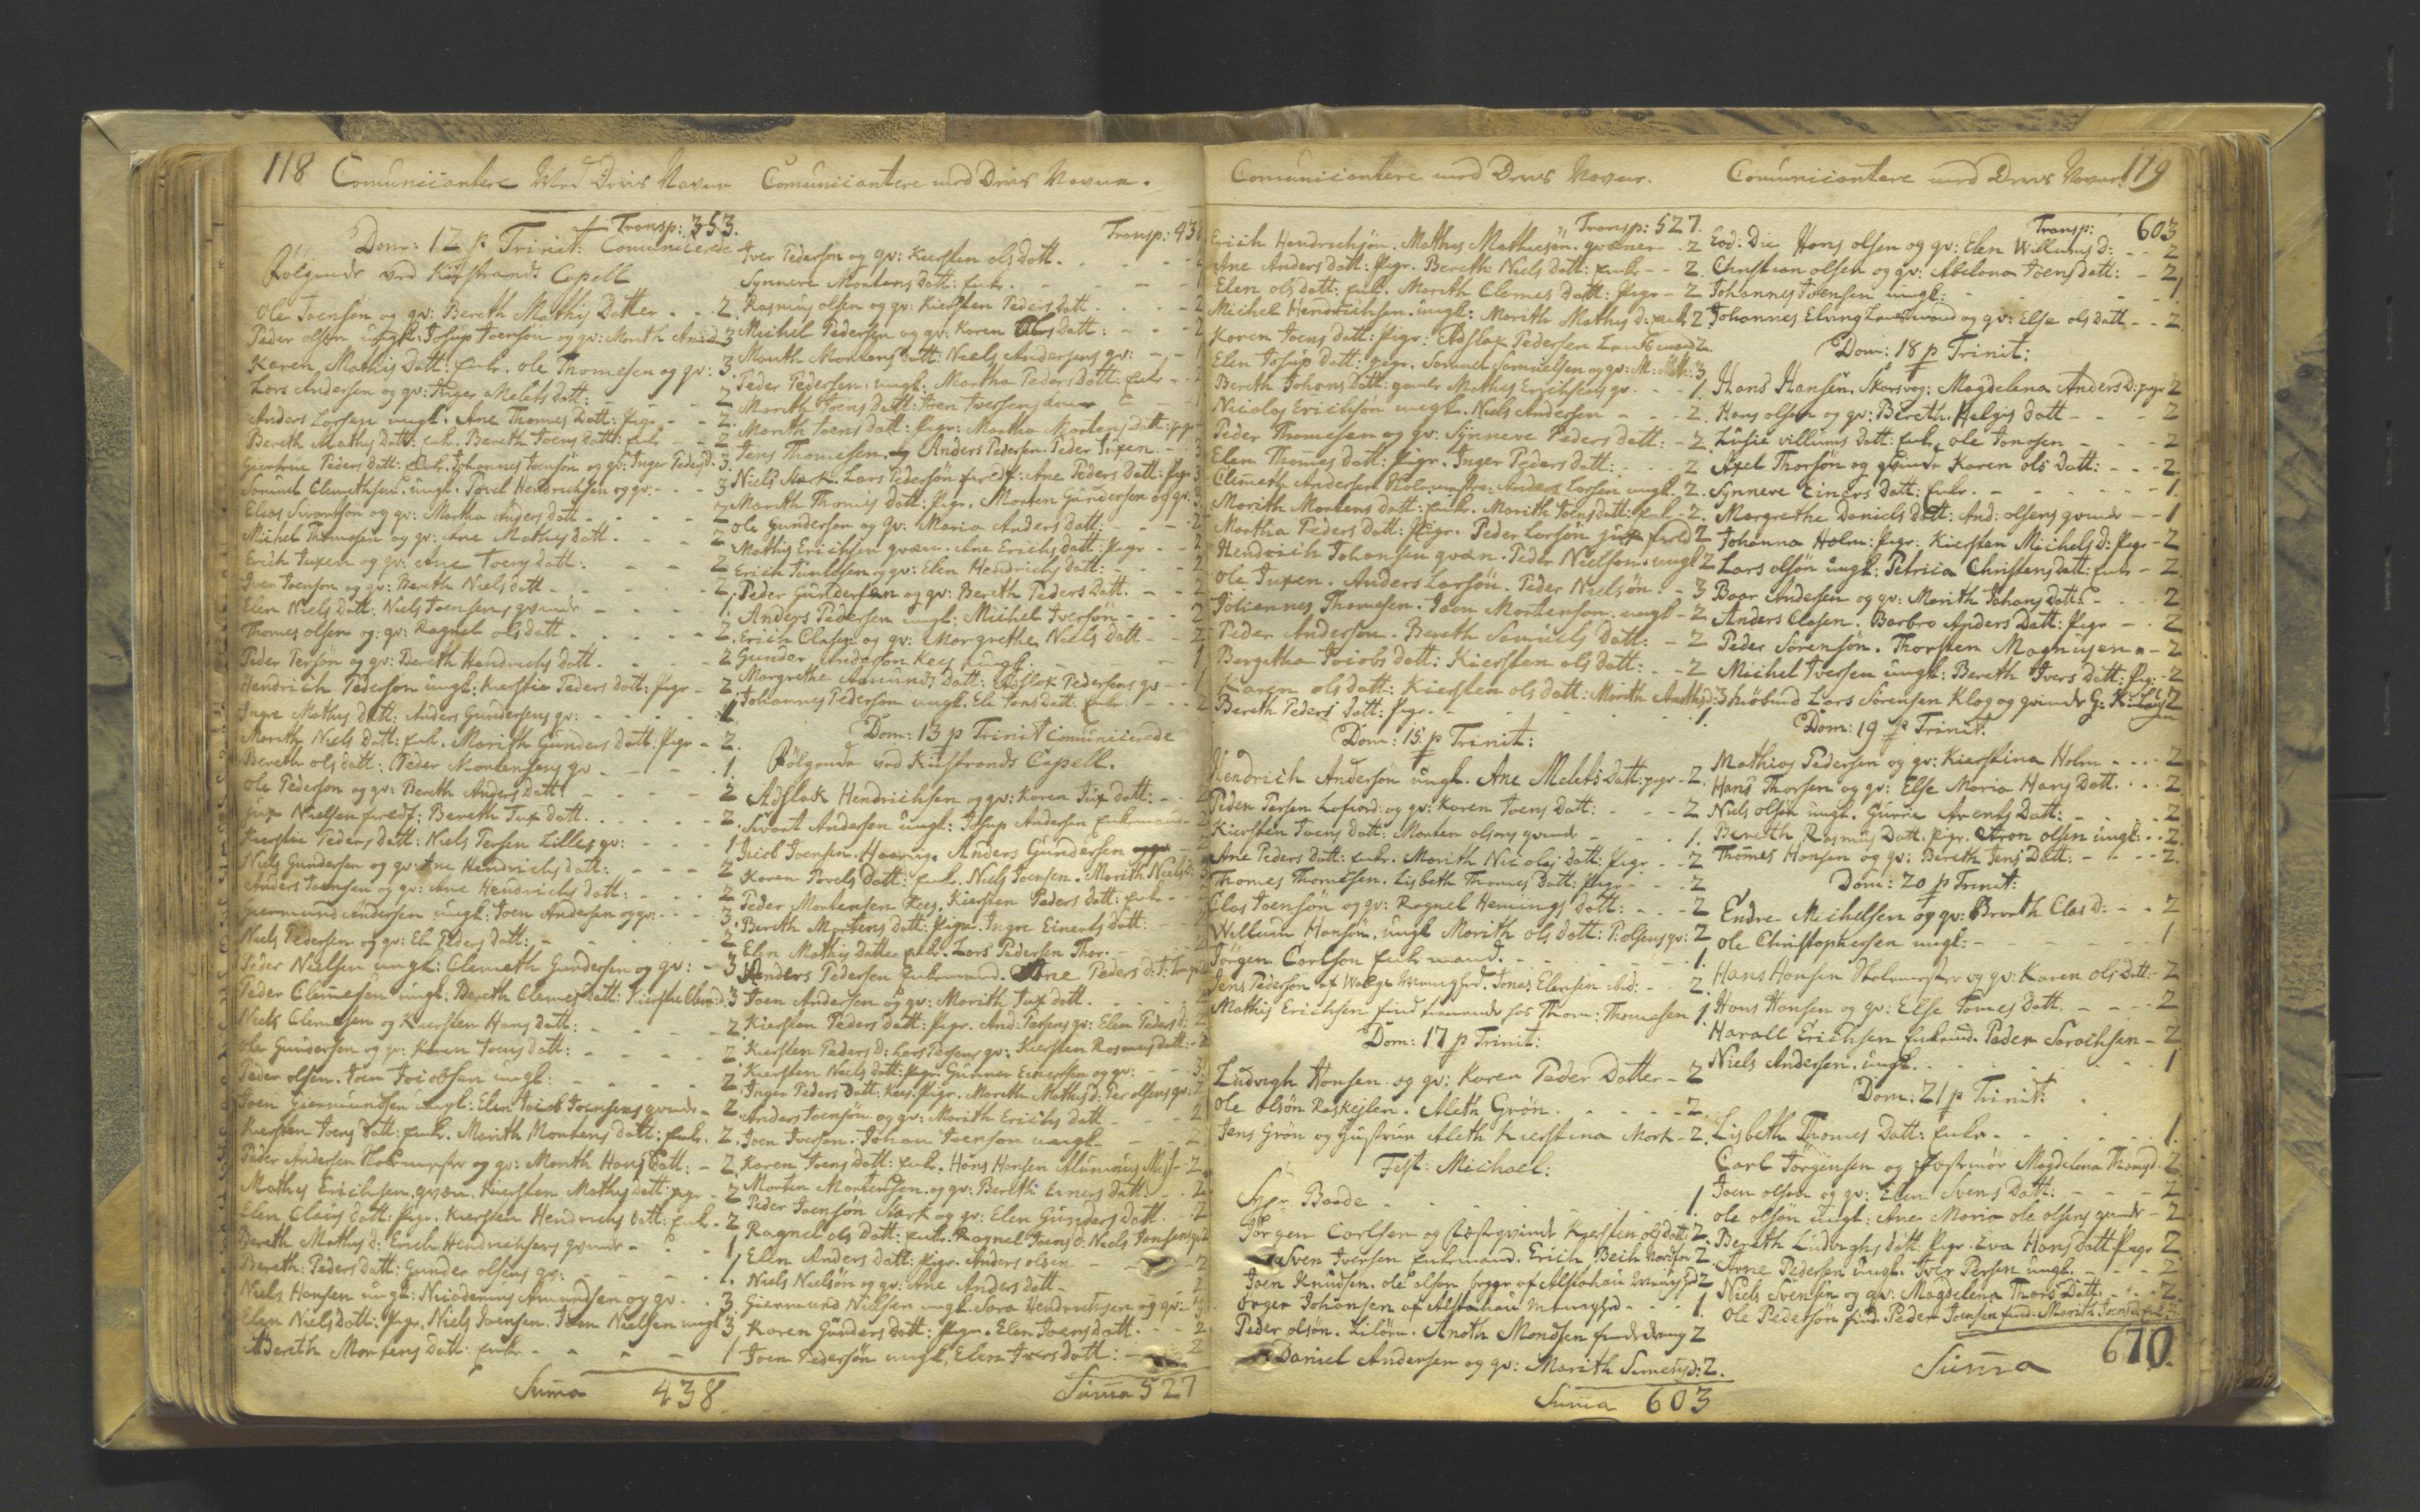 118 Comunicantere Med Deris Navne
Transp: 353.
Dom: 12 p Trinit: Comunicerede
Følgende ved Kistrands Capell
Ole Joensøn og qv: Bereth Mathis Datter - - 2.
Peder olsøn ungk: Josup Joensøn og qv: Marith And:d: 3
Karen Mathis Datt: Enke. ole Thomesen og qv: 3.
Lars Andersen og qv: Inger Melets datt: - - 2
Anders Larsen ungk: Ane Thomes Datt: Pige - - 2.
Bereth Mathis datt: enk. Bereth Joens datt: enk - - 2
Peders datt: Enk. Johannes Joensøn og qv: Inger Peders d. 3.
Samuel Clemethsen ungk. Povel Hendrichsen og qv: - - 3
Elias Sivartsøn og qv: Martha Anders datt - - 2
Michel Thomesen og qv: Ane Mathis datt - - 2
Erich Juxen og qv: Ane Joens datt: - - 2
Iver Joensen og qv: Bereth Niels datt - - 2.
Elen Niels Datt: Niels Joensens qvinde - - 1.
Thomes olsen og qv: Ragnel ols datt - - 2.
Peder Persøn og qv: Bereth Hendrichs datt - - 2
Hendrich Pedersen ungk: Kierstie Peders datt: Pige - 2.
Ingre Mathis datt: Anders Gundersens qv: - - 1.
Marith Niels Datt: enk. Marith Gunders datt: Pige - 2.
Bereth ols datt: Peder Mortensens qv - - 1.
Ole Pederson og qv: Bereth Anders Datt: - - 2
Jux Nielsen : Bereth Jux datt. - - 2.
Kierstie Peders datt: Niels Persen Lilles qv: - - 1
Niels Gundersen og qv: Ane Hendrichs datt: - - 2
Anders Joensen og qv: Ane Hendrichs datt: - - 2
Giermund Andersen ungk: Joen Andersen og qv: - - 3.
Niels Pedersen og qv: El: Peders datt: - - 2
Peder Nielsen ungk: Clemeth Gundersen og qv: - 3
Peder Clemesen ungk. Bereth Clemes datt: Kierstie Clem:d: 3
Niels Clemesen og Kiersten Hans datt: - - 2
Ole Gundersen og qv: Karen Joens datt: - - 2.
Peder olsen. Joen Jacobsen ungk: - - 2.
Joen Giermundsen ungk: Elen Jacob Joensens qvinde - 2.
Kiersten Joens datt: enk. Marith Mortens datt: Enk. 2.
Peder Andersen og qv: Marith Hans datt: - 2.
Mathis Erichsen qvæn. Kiersten Mathis datt: pige - 2
Elen Claus datt: Pige. Kiersten Hendrichs datt: Enk. 2
Bereth Mathis d: Erich Hendrichsens qvinde - - 1
Bereth Peders datt: Gunder olsens qv: - - 1.
Niels Hansen ungk: Nicodemus Amundsen og qv - - 3.
Elen Niels datt: Pige. Niels Joensen. Joen Nielsen ungk 3
Bereth Mortens datt: enke - - 1
Suma 438
Comunicantere med Deris Navne.
Transp: 43
Iver Pedersøn og qv: Kiersten ols datt.
Synneve Mortens datt: enke.
Rasmus olsen og qv: Kiersten Peders datt
Michel Pedersen og qv: Karen Ols datt: - - 2
Marith Mortens datt: Niels Andersens qv: - - 1
Peder Pedersen ungk. Martha Peders datt: Enk -
Marith Joens datt: Joen Iversens
Marith Joens datt: Pige: Martha Mortens datt: pige
Jens Thomesen og Anders Pedersen. Peder Juxen - 3
Niels Stark. Lars Pedersøn : Ane Peders datt: Pige 3
Marith Thomes datt: Pige. Morten Gundersen og qv. 3
Ole Gundersen og qv: Maria Anders datt: - - 2
Mathis Erichsen qvæn. Ane Erichs datt: Pige - - 2
Erich og qv: Elen Hendrichs datt: - - 2
Peder Gundersen og qv: Bereth Peders datt. - - 2
Anders Pedersen ungk: Michel Iversøn - - 2
Erich Clasen og qv: Margrethe Niels datt - - 2
Gunder Anderson Kees ungk. - - 1
Margrethe Amunds datt: Adslak Pedersens qv - - 1
Johannes Pedersøn ungk. Eli Jons datt: Enk. - - 2
Dom: 13 p Trinit comunicerede
Følgende ved Kistrands Capell.
Adslak Hendrichsen og qv: Karen Jux datt: - 2
Sivart Andersen ungk: Josup Andersen Enkemand - 2
Jacob Joensen. Haarvig. Anders Gundersen - 2
Karen Povels datt: Enk. Niels Joensen. Marith Niels d: 3
Peder Mortensen Kees. Kiersten Peders datt: Enke - 2
Bereth Mortens datt: Pige. Ingre Einerts datt: 2
Elen Mathis datter enk. Lars Pedersen Thor. -
Anders Pedersen Enkemand. Ane Peders d:
Joen Andersen og qv: Marith Jux datt. - - 2
Kiersten Peders datt: Pige. And: Persens qv: Elen Peders d:
Kiersten Peders d: Lars Persens qv: Kiersten Rasmus datt: - 2
Kiersten Niels datt: Pige. Gunner Einersen og qv: - - 3.
Inger Peders datt: Kees. Pige. Marith Mathis d: Per olsens qv: 2
Anders Joensøn og qv: Marith Erichs datt - - 2
Joen Iversøn. Johan Joensøn ungk. - - 2
Karen Joens datt: enk. Hans Hansen Aluminus Miss: - 2
Morten Mortensen og qv: Bereth Einers datt: - - 2
Peder Joensøn Stark og qv: Elen Gunders datt. - - 2
Ragnel ols datt: enk. Ragnel Joens d: Niels Jonsens qv 2
Elen Anders datt: Pige. Anders olsen - - 2
Niels Nielsøn og qv: Ane Anders datt - - 2
Giermund Nielsen ungk. Lars Hendrichsen og qv: - 3
Karen Gunders datt: Pige. Elen Joens datt. - - 2
Joen Pedersøn ungk. Elen Ivers datt: - - 2
Suma 527
Comunicantere med Deres Navne.
Transp: 527.
Erich Hendrichsøn. Mathis Mathiesøn. qvæner - 2
Ane Anders datt: Pige. Bereth Niels datt: Enke - - 2.
Elen ols datt: Enk. Marith Clemes datt: Pige - 2
Michel Hendrichsen. ungk: Marith Mathis d: enk 2
Karen Joens datt: Pige: Adslak Pedersen 2.
Elen Josup datt: Pige. Samuel Samuelsen og qv: M: Math: 3.
Bereth Johans datt: Mathis Erichsens qv - - 1.
Nicolas Erichsøn ungk. Niels Andersen - - 2.
Peder Thomesen og qv: Synneve Peders datt: - 2
Elen Thomes datt: Pige. Inger Peders datt: - - 2
Clemeth Andersen Anders Larsen ungk. 2.
Marith Mortens datt: Enk. Marith Joens datt: Enk - 2.
Martha Peders datt: Pige. Peder Larsøn 2
Hendrich Johansen qvæn. Peder Nielsen. ungk 2
Ole Juxen. Anders Larsøn. Peder Nielsøn. - 3
Johannes Thomesen. Joen Mortensøn. ungk - 2
Peder Andersøn. Bereth Samuels datt: - 2
Bergitha Jacobs datt: Kiersten ols datt: - - 2
Karen ols datt: Kiersten ols datt: Marith Mathis d: 3
Bereth Peders datt: Pige. - - 1.
Dom: 15 p Trinit:
Hendrich Andersøn ungk. Ane Melets datt: pige - 2.
Peder Persen Lafiord: og qv: Karen Joens datt: - - 2
Kiersten Joens datt: Morten olsens qvinde - - 1.
Ane Peders datt: enk. Marith Nicolas datt: Pige - - 2
Thomes Thomesen. Lisbeth Thomes datt: Pige - - 2
Clas Joensøn og qv: Ragnel Hemings datt: - - 2
Willum Hansøn. ungk Marith ols datt: P: olsens qv: 2
Jørgen Carlsøn Enkemand. - - 1.
Jens Pedersøn af Jonas Elensen ibid: - - 2.
Mathis Erichsen hos Thom: Thomesen 1.
Dom: 17 p Trinit:
Ludvigh Hansen og qv: Karen Peder Datter - 2
Ole olsøn Reskejlen. Aleth Grøn. - - 2.
Jens Grøn og Hustrue Aleth Kierstina Mork - 2.
Fest: Michael:
Sygn Baade - - 1
Jørgen Carlsen og Kiersten ols datt: 2.
Sven Iversen Enkemand. Erich Bech 2.
Joen Knudsen. Ole olsøn begge af Alstahau 2
Ørger Johansen af Alstahau - - 1.
Peder olsøn. Liløen. Anoth Monsen 2
Daniel Andersen og qv: Marith Simens d: 2.
Suma 603
Comunicantere med Deres Navne 119
Transp: 603
Eod: Die Hans olsen og qv: Elen Willums d: - - 2
Christian olsen og qv: Abelona Joens datt: - 2
Johannes Joensen ungk: - - 1.
Johannes Elving og qv: Else ols datt - - 2.
Dom: 18 p Trinit:
Hans Hansen. Skarsvog: Magdelena Anders D: pige 2
Hans olsen og qv: Bereth Helgis datt - - 2
Lusie villums datt: Enke. ole Jonosen - - 2
Axel Thorsøn og qvinde Karen ols datt: - - 2.
Synneve Einers datt: Enke. - - 1.
Margrethe Daniels datt: And: olsens qvinde - - 1
Johanna Holm: Pige: Kiersten Michels d: Pige - 2
Lars olsøn ungk: Petricia Christens datt: enk - 2.
Baar Andersen og qv: Marith Johans datt: - - 2
Anders Clasen. Barbro Anders Datt: Pige - - 2
Peder Sørensøn. Thorsten Magnusen - 2
Michel Iversen ungk: Bereth Ivers datt: Pige - 2
Lars Sørensen Klog og qvinde G: K: 2
Dom: 19 p Trinit:
Mathias Pedersen og qv: Kierstina Holm - - 2
Hans Thorsen og qv: Else Maria Hans Datt. - - 2
Niels olsøn ungk. Gurre Arents datt: - - 2
Bereth Rasmus Datt. Pige. Aron olsen ungk: - - 2.
Thomes Hansen og qv: Bereth Jens Datt: - - 2.
Dom: 20 p Trinit:
Endre Michelsen og qv: Bereth Clas D: - - 2
Ole Christophersen ungk: - - 1
Hans Hansen Skolemester og qv: Karen ols Datt: - 2
Hans Hansen og qv: Else Tomes datt. - - 2
Harall Erichsen Enkemd. Peder Sarachsen - 2
Niels Andersen. ungk. - - 1
Dom: 21 p Trinit:
Lisbeth Thomes Datt: Enke - - 1.
Carl Jørgensen og Magdelena Thomes d: 2
Joen olsen og qv: Elen Svens Datt: - - 2
Ole olsøn ungk: Ane Maria ole olsens qvinde - 2
Bereth Ludvighs datt. Pige. Eva Hans datt Pige 2
Arne Pedersen ungk. Iver Persen ungk. - - 2
Niels Svensen og qv: Magdelena Thors Datt. - - 2.
Ole Pedersøn find. Peder Joensen find. Marith Joens d:
Suma 670.